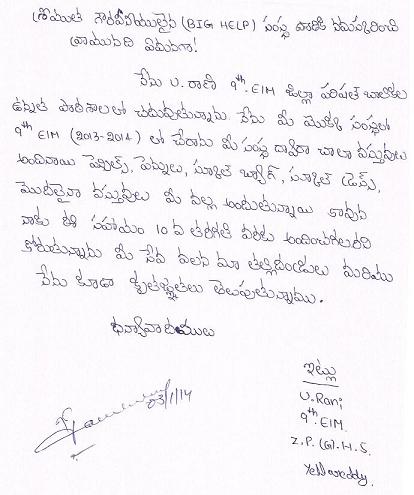 శ్రీయుత గౌరవనీయులైన (BIG HELP) సంస్థ వారికి నమస్కరించి
వ్రాయునది ఏమనగా!
నేను U. రాణి 9th. EIM జిల్లా పరిషత్ బాలికల
ఉన్నత పాఠశాలలో చదువుతున్నాను నేను మీ మొక్క సంస్థలో
9th EIM (2013-2014) లో చేరాను మీ సంస్థ ద్వారా చాలా వస్తువులు
అందినాయి పెన్నులు, స్కూల్ బ్యాగ్, స్కూల్ డ్రెస్స్,
మొదలైన వస్తువులు మీ వల్ల అందుతున్నాయి కావున
నాకు ఈ సహాయం 10 వ తరగతి వరకు అందించగలరని
కోరుతున్నాను మీ సేవ వలన మా తల్లిదండ్రులు మరియు
నేను కూడా కృతజ్ఞతలు తెలుపుతున్నాము.
ధన్యవాదములు
ఇట్లు
U. Rani
9th. EIM.
Z. P. (G). H. S.
Yellareddy.
03/1/14